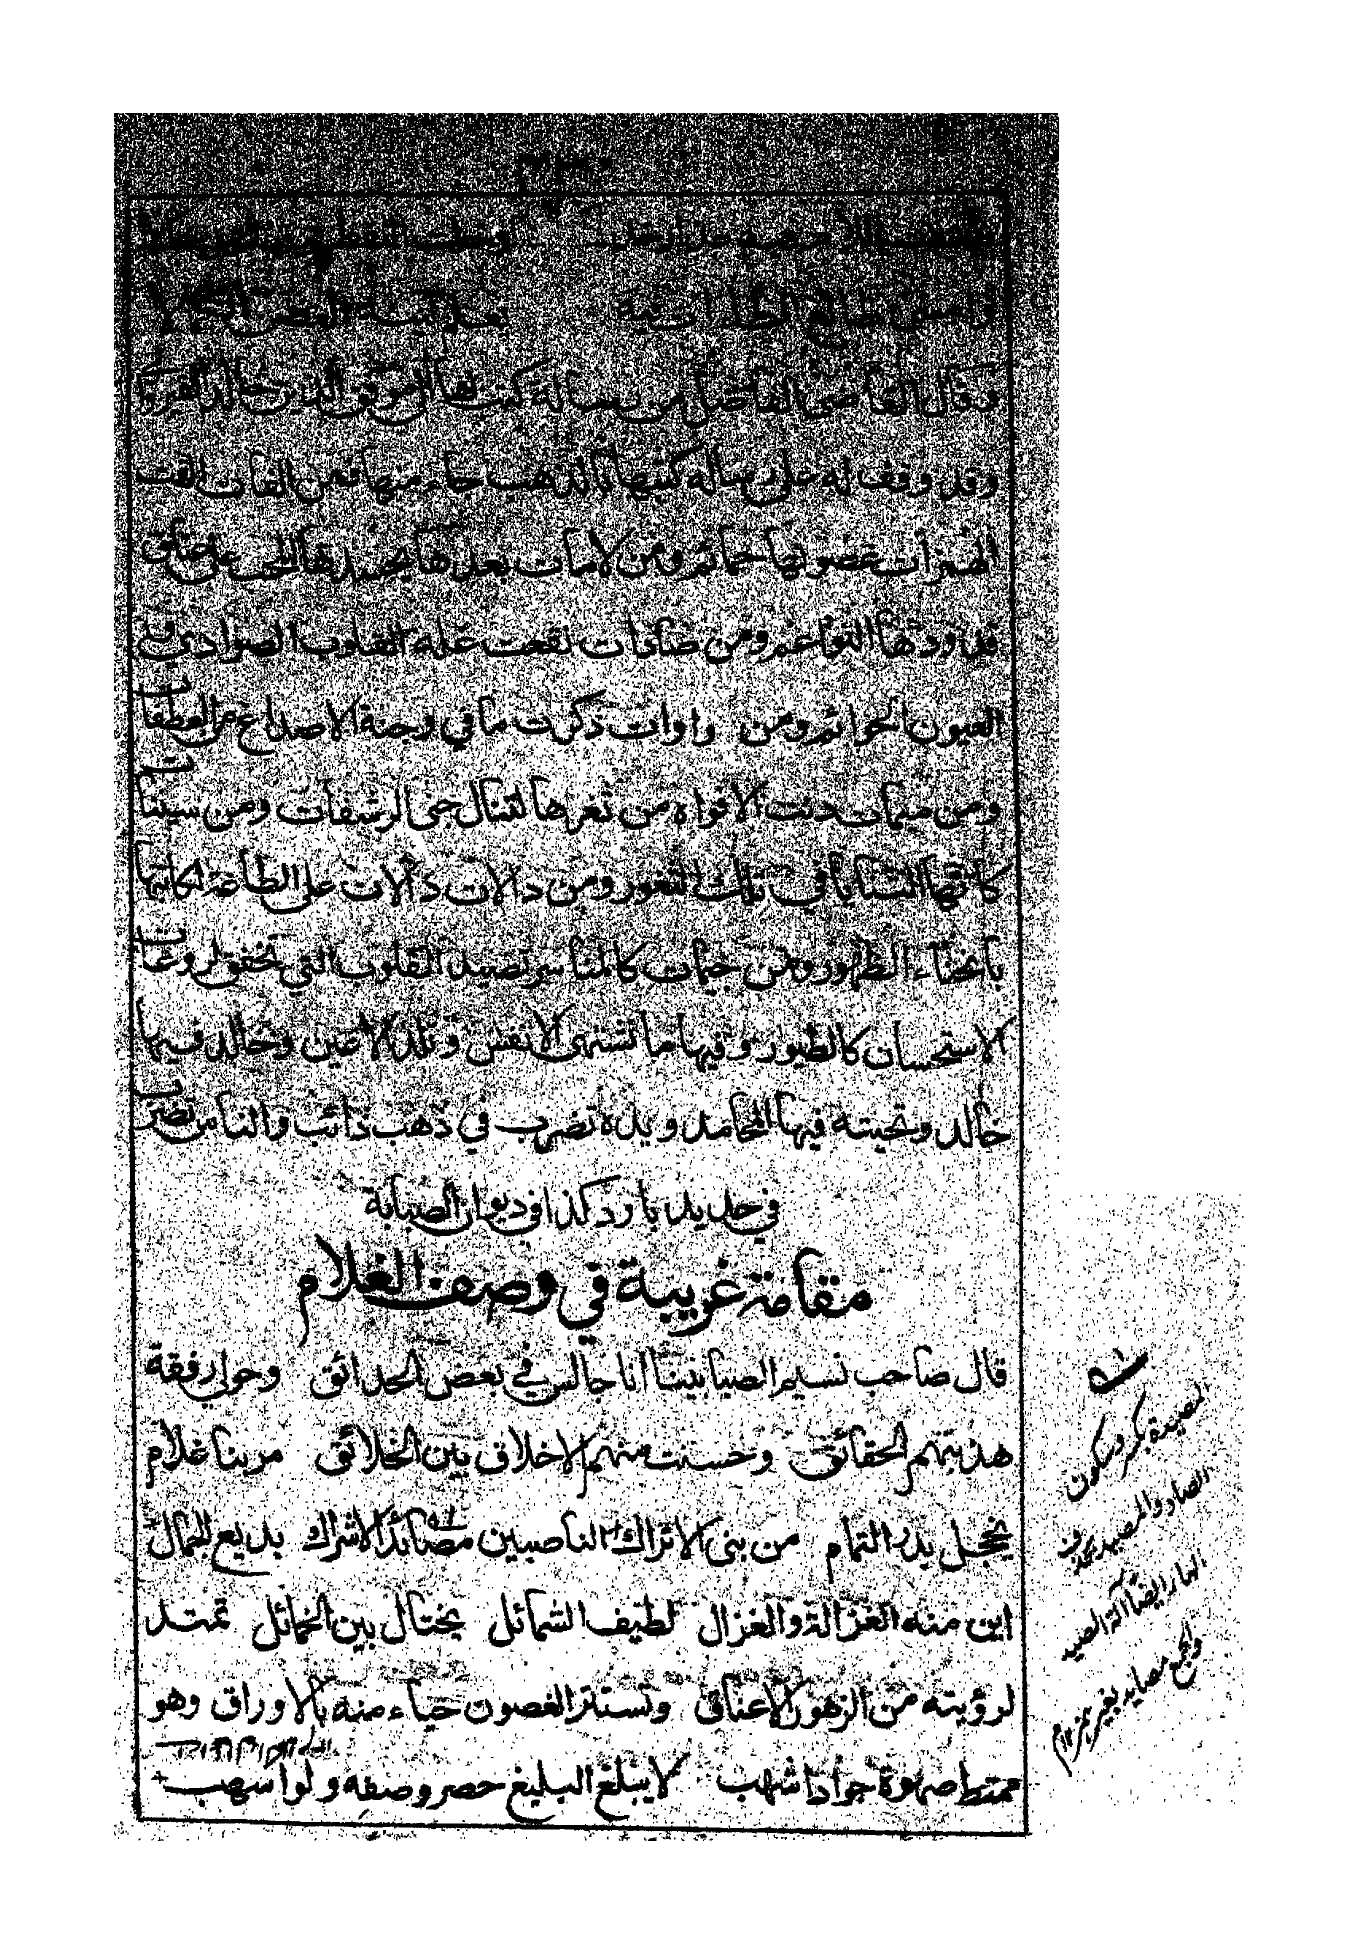 واحسن طالع
وقال القاضي الفاضل من رسالة كتب بها الى موفق الدين خالد القيسراني
وقد وقف له على رسالة كتبها بالذهب جاء منها فمن الفات الفت
الهمزات غصونها حمائم ومن لامات بعدها يحسدها المحب على عناق
قدودها النواعم ومن صادات نقعت غلة القلوب الصوادي و
العيون الحوائم ومن واوات ذكرت ما في وجنة الاصداغ من العطفات
ومن ميمات دنت الافواه من ثغرها لتنال جنى الرشفات ومن سينات
كانها الثنايا في تلك الثغور ومن دالات دالات على الطاعة لكاتبها
بانحناء الظهور ومن جيمات كالمناسر تصيد القلوب التي تخفق لروعات
الاستحسان كالطيور وفيها ما تشتهي الانفس وتلذ الاعين وخالد فيها
خالد وتحيته فيها المحامد ويده تضرب في ذهب ذائب والناس تضرب
في حديد بارد كذا في ديوان الصبابة
مقامة غريبة في وصف الغلام
قال صاحب نسيم الصبا بينا انا جالس في بعض الحدائق وحولي رفقة
هذبتهم الحقائق وحسنت منهم الاخلاق بين الخلائق مر بنا غلام
يخجل بدر التمام من بنى الاتراك الناصبين مصائد الاشراك بديع الجمال
اين منه الغزالة والغزال لطيف الشمائل يختال بين الخمائل تمتد
لرؤيته من الزهور الاعناق وتستتر الغصون حياء منه بالاوراق وهو
ممتط صهوة جواد اشهب لا يبلغ البليغ حصر وصفه ولو اسهب
المصيدة بكسر وسكون
الصاد والمصيد بحذف
الهاء ايضا آلة الصيد
والجمع مصايد بغير همز